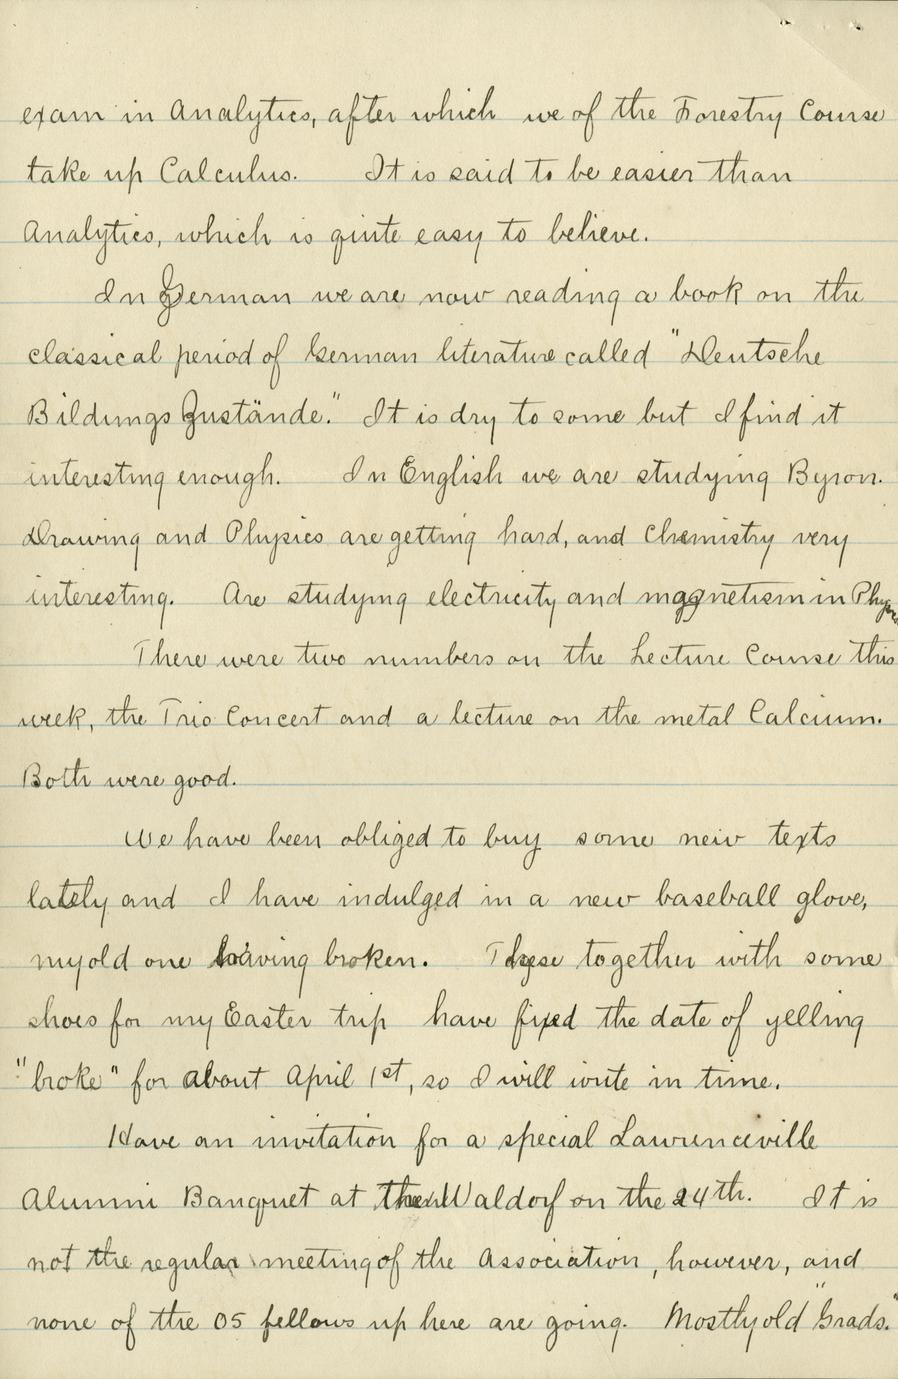 exam in Analytics, after which we of the Forestry Course
take up Calculus. It is said to be easier than
Analytics, which is quite easy to believe.
In German we are now reading a book on the
classical period of German literature called "Deutsche
Bildungs Zustände." It is dry to some but I find it
interesting enough. In English we are studying Byron.
Drawing and Physics are getting hard, and Chemistry very
interesting. Are studying electricity and magnetism in Physics
There were two numbers on the Lecture Course this
week, the Trio Concert and a lecture on the metal Calcium.
Both were good.
We have been obliged to buy some new texts
lately and I have indulged in a new baseball glove,
my old one having broken. These together with some
shoes for my Easter trip have fixed the date of yelling
"broke" for about April 1st, so I will write in time.
Have an invitation for a special Lawrenceville
Alumni Banquet at the Waldorf on the 24th. It is
not the regular meeting of the Association, however, and
none of the 05 fellows up here are going. Mostly old "Grads."